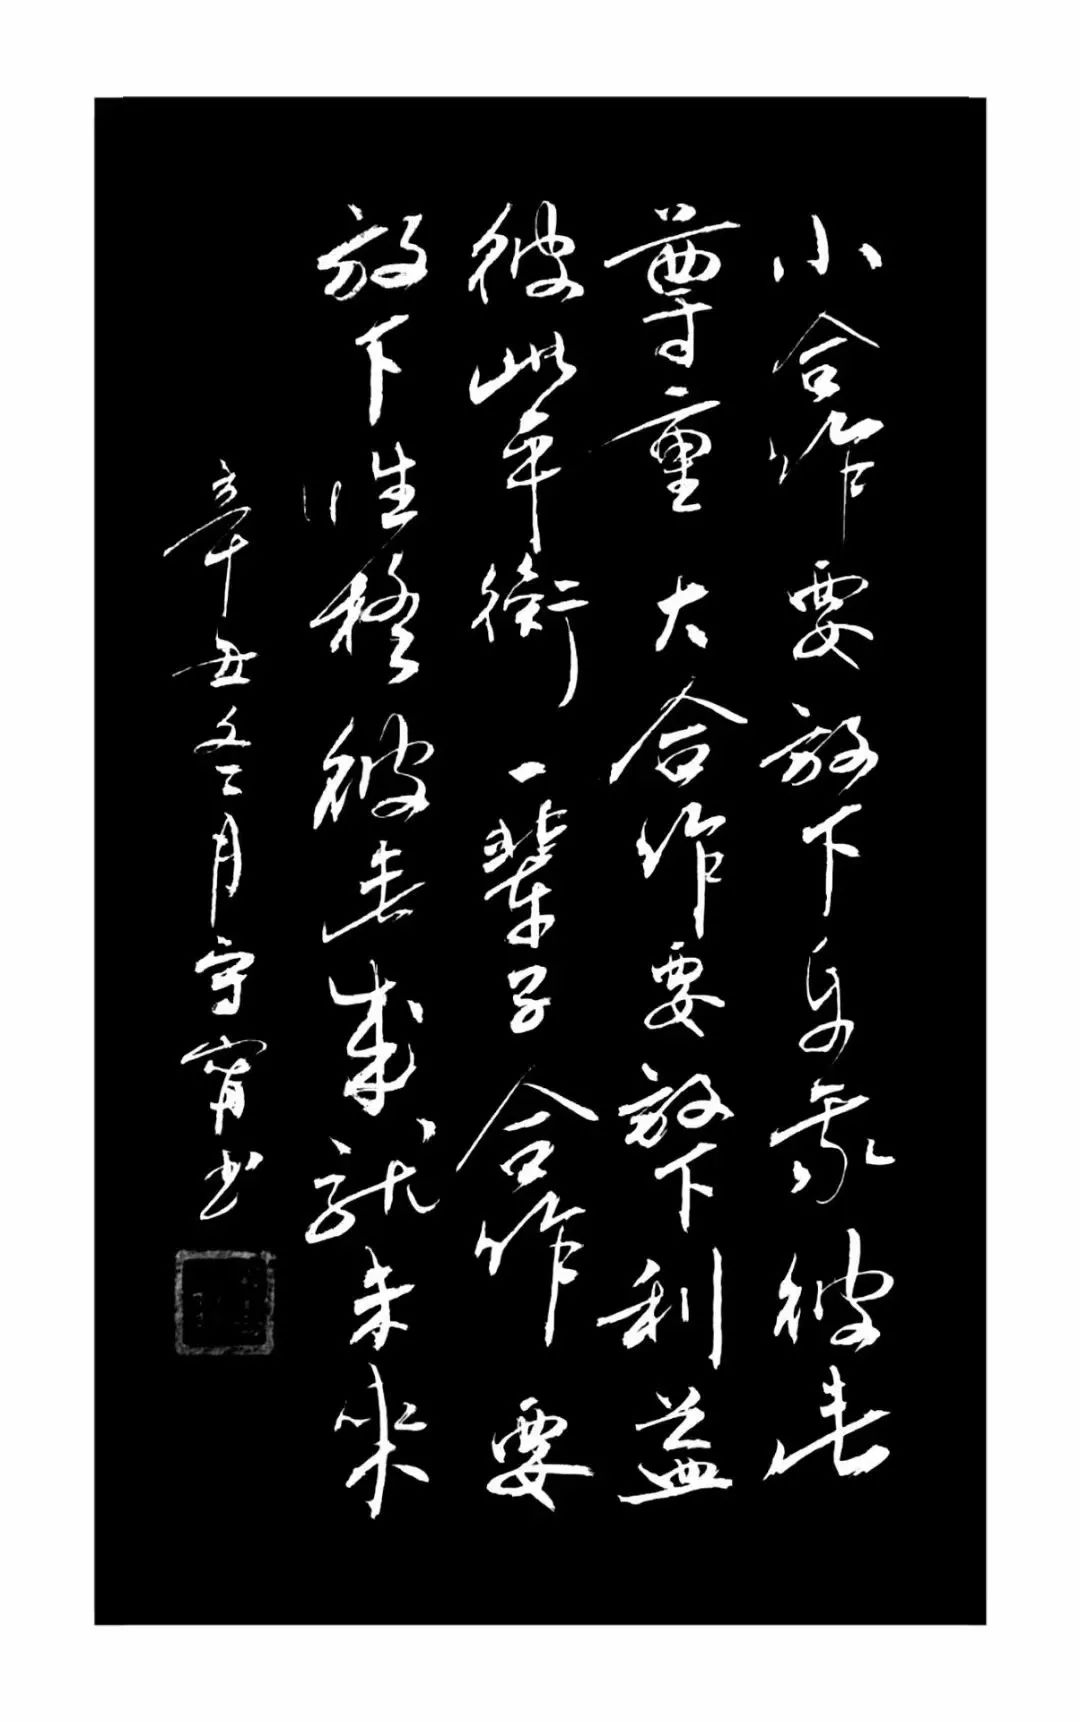 小合作要放下自我彼此
尊重大合作要放下利益
彼此平衡一辈子合作要
放下性格彼此成就未来
辛丑冬月守甯书